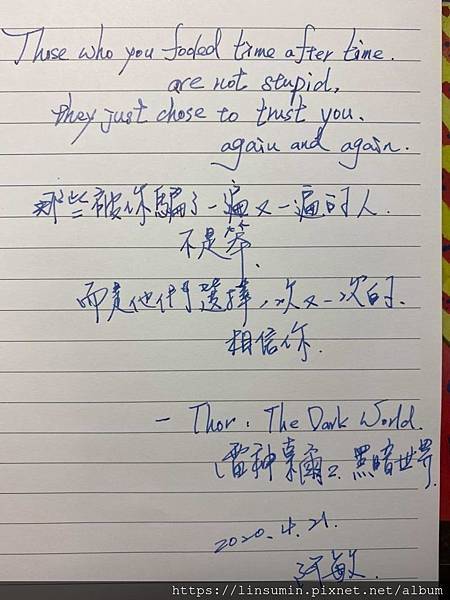 Those who you fooled time after time.
are not stupid,
they just chose to trust you.
again and again.
那些被你騙了一遍又一遍的人.
不是笨.
而是他們選擇,一次又一次的.
相信你.
- Thor: The Dark World.
(雷神索爾2.黑暗世界.
2020.4.21.
阿敏.
https://linsumin.pixnet.net/album